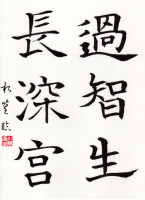 過智生
長深宮